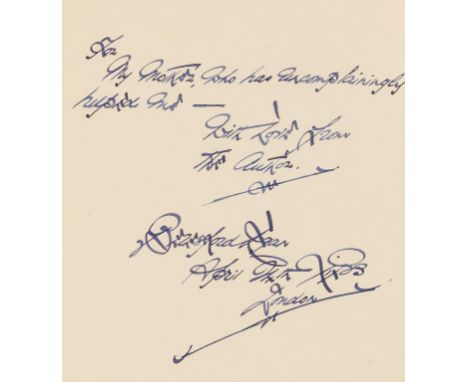 For
My Mother, who has uncomplainingly
helped me —
With Love from
The Author.
Beresford Egan
April
London